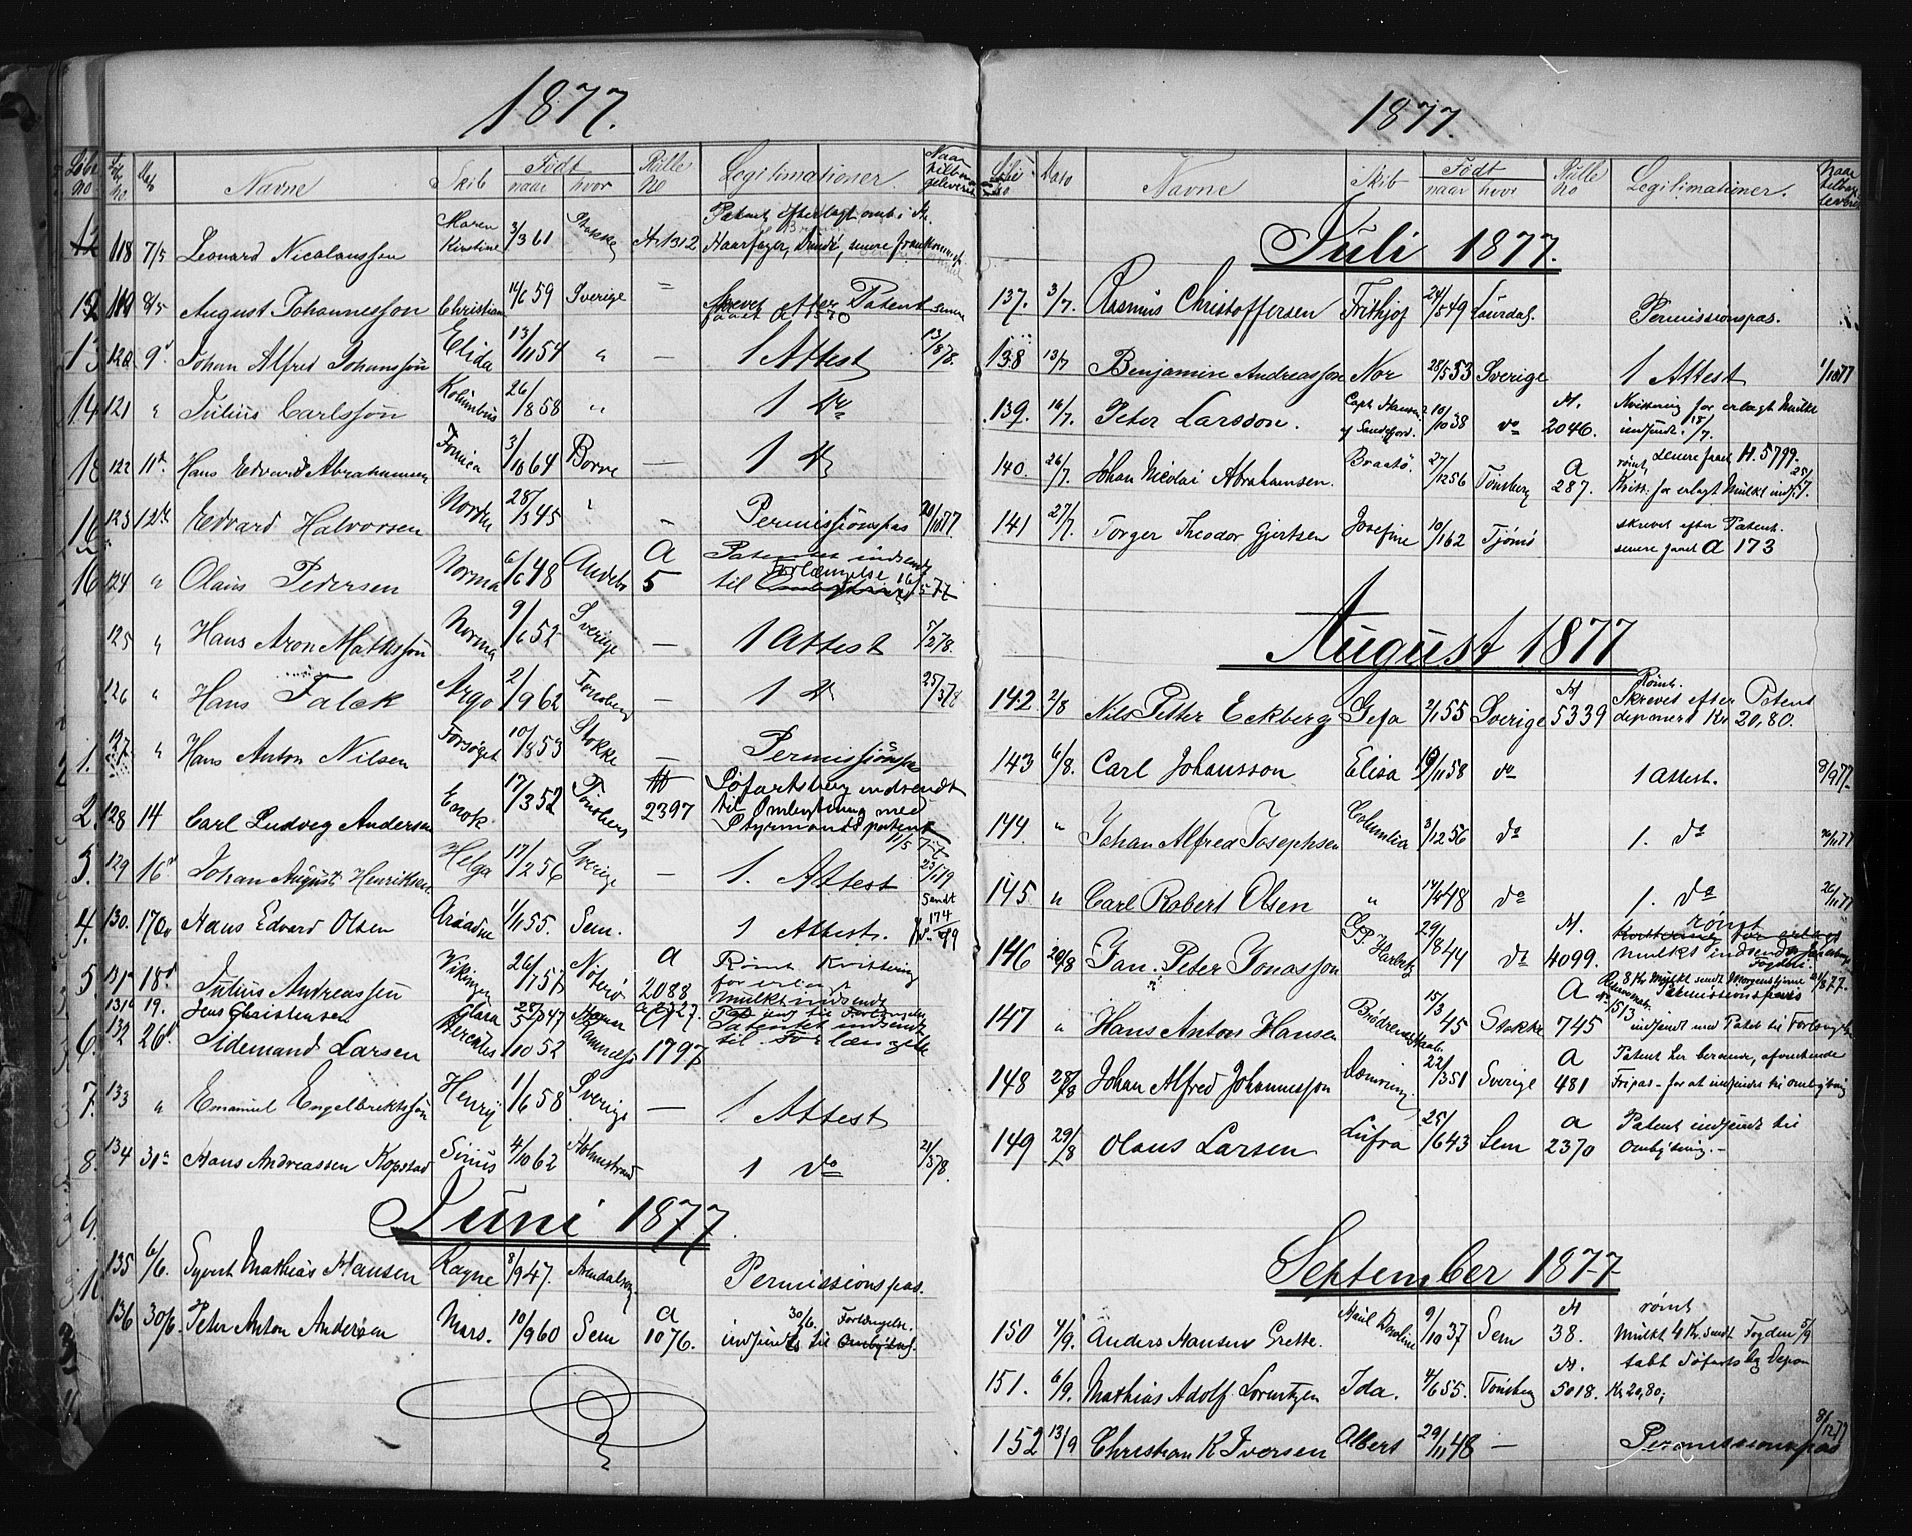 1877.
Navne Skib Født naar hvor Rulle No Legitimationer.
118 7/5 Leonard Nicolaussen Maren Kirstine 3/3 61 Stokke A 1312
119 8/5 August Johannesson Christiane 14/6 59 Sverige = Skrevet efter Patent senere faaet A 1570
120 9d Johan Alfred Johansson Elida 13/11 54 " — 1 Attest 13/8 78.
121 " Julius Carlsson Kolumbus 26/8 58 " 1 do
122 11d Hans Edvard Abrahamsen 3/10 64 Borre — 1 do
123 12te Edvard Halvorsen Norden 28/3 45 " — Permissionspas 20/10 77
124 " Olaus Pedersen Norma 6/6 48 Andebo A 5 Patentet indsendt til Forlængelse 16/5 77
125 " Hans Aron Mathisson Norma 9/6 52 Sverige — 1 Attest 7/2 78.
126 " Hans Falck Argo 2/9 62 Tønsberg — 1 do 25/3 78
127 " Hans Anton Nilsen Forsøget 10/8 53 Stokke — Permissionspas
128 14 Carl Ludvig Andersen Enok 17/3 52 Tønsberg M 2397 Søfartsbog indsendt til Ombytning med Styrmandspatent 11/5 77
129 16d Johan August Henriksen Helga 17/2 56 Sverige — 1. Attest 23/1 79
130. 17de Hans Edvard Olsen Ariadne 1/11 55. Sem. 1 Attest. Sendt
131 18d Julius Andreassen Vikingen 26/7 57 Nøterø A 2088 Rømt Kvittering for erlagt Mulkt indsendt
131a 19. Jens Christensen Clara
132 26d Sidemand Larsen Hercules 1/10 52 A 1797 Patentet indsendt til Forlængelse
133 " Emanuel Engelbrektsson Henry 1/6 58 Sverige — 1 Attest
134 31te Hans Andreassen Kopstad Sirius 4/10 62 Holmestrand 1 do 21/3 78.
Juni 1877.
135 6/6. Syvert Mathias Hansen Ragne 8/9 47. Permissionspas.
136 30/6. Peter Anton Andersen Mars. 10/9 60 Sem A 1076. 30/6. Forlængelse. indsendt til Ombytng.
1877.
No Dato Navne Skib Født naar hvor Rulle No Legitimationer. Naar tilbage leveret
Juli 1877.
137. 3/7. Rasmus Christoffersen Frithjof 24/5 49 Laurdal. Permissionspas.
138 13/7 Benjamin Andreasson Nor 28/5 53 Sverige 1 Attest 1/10 77
139. 16/7. Peter Larsson. Capt Hansen af Sandefjord. 10/10 38 do M. 2046. Kvittering for erlagt Mulkt indsendt. 18/7.
140. 26/7. Johan Nicolai Abrahamsen. Braatø. 27/12 56 Tønsberg A 287. rømt, senere faaet M. 5799. Kvitt. for erlagt Mulkt inds. 25/7.
141 27/7. Torger Theodor Gjertsen Josefine 10/1 62 Tjømø skrevet efter Patent. senere faaet A 173
August 1877
142 2/8 Nils Petter Eckberg Gefa 2/1 55 Sverige M 5339 Rømt. Skrevet efter Patent deponert Kr 20,80.
143 6/8. Carl Johansson Elisa 19/11 58 do 1 Attest. 9/9 77
144. " Johan Alfred Josephsen Columbia 3/12 56 do 1. do
145 " Carl Robert Olsen " 14/4 48 do 1. do 26/11 77
146 20/8 Jan Peter Jonasson 29/8 44 do M. 4099. rømt
147 " Hans Anton Hansen 15/3 45 Stokke A 745 indsendt med Patent til Forlængelse
148 28/8 Johan Alfred Johannesson Dæmring. 22/3 51 Sverige A 481 Patent her beroende, afventende Fripas for at indsendes til Ombytning
149 29/8 Olaus Larsen Lufra 25/6 43 Sem A 2370 Patent indsendt til Ombytning.
September 1877
150 4/9. Anders Hansen Grette. 9/10 37 Sem M 38. rømt Mulkt 4 Kr. sendt Fogden 5/9
151. 6/9. Mathias Adolf Lorentzen Ida. 4/6 55. Tønsberg M. 5018. tabt Søfartsbog Depon Kr 20,80,
152 13/9 Christian K Iversen Albert 29/11 48 — Permissionspas 8/12 77